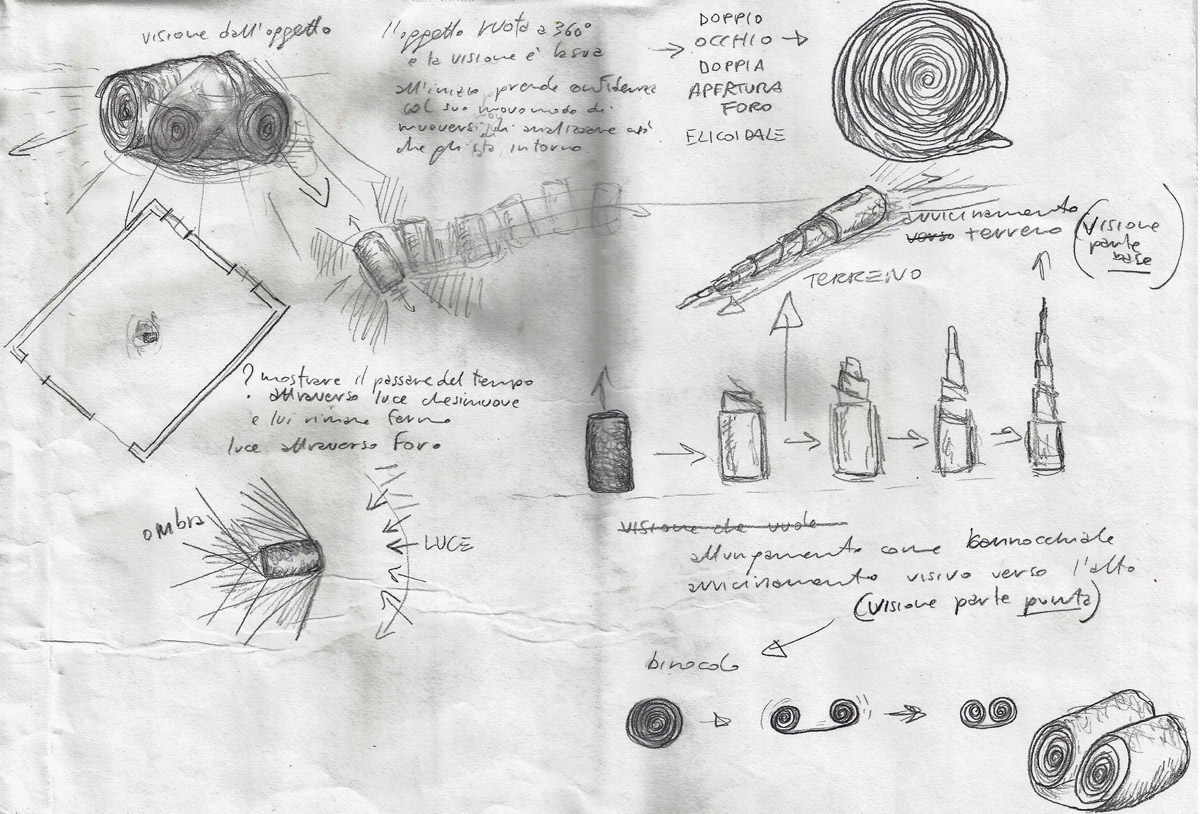 visione dall'oggetto
l'oggetto ruota a 360°
e la visione è la sua
all'inizio prende confidenza
col suo nuovo modo di
muoversi, di analizzare ciò
che gli sta intorno
DOPPIO
OCCHIO
DOPPIA
APERTURA
FORO
ELICOIDALE
avvicinamento
verso terreno
(visione
parte
base)
TERRENO
? mostrare il passare del tempo
attraverso luce che si muove
e lui rimane fermo
luce attraverso foro
ombra
LUCE
visione che vuole
allungamento come cannocchiale
avvicinamento visivo verso l'alto.
(visione parte punta)
binocolo